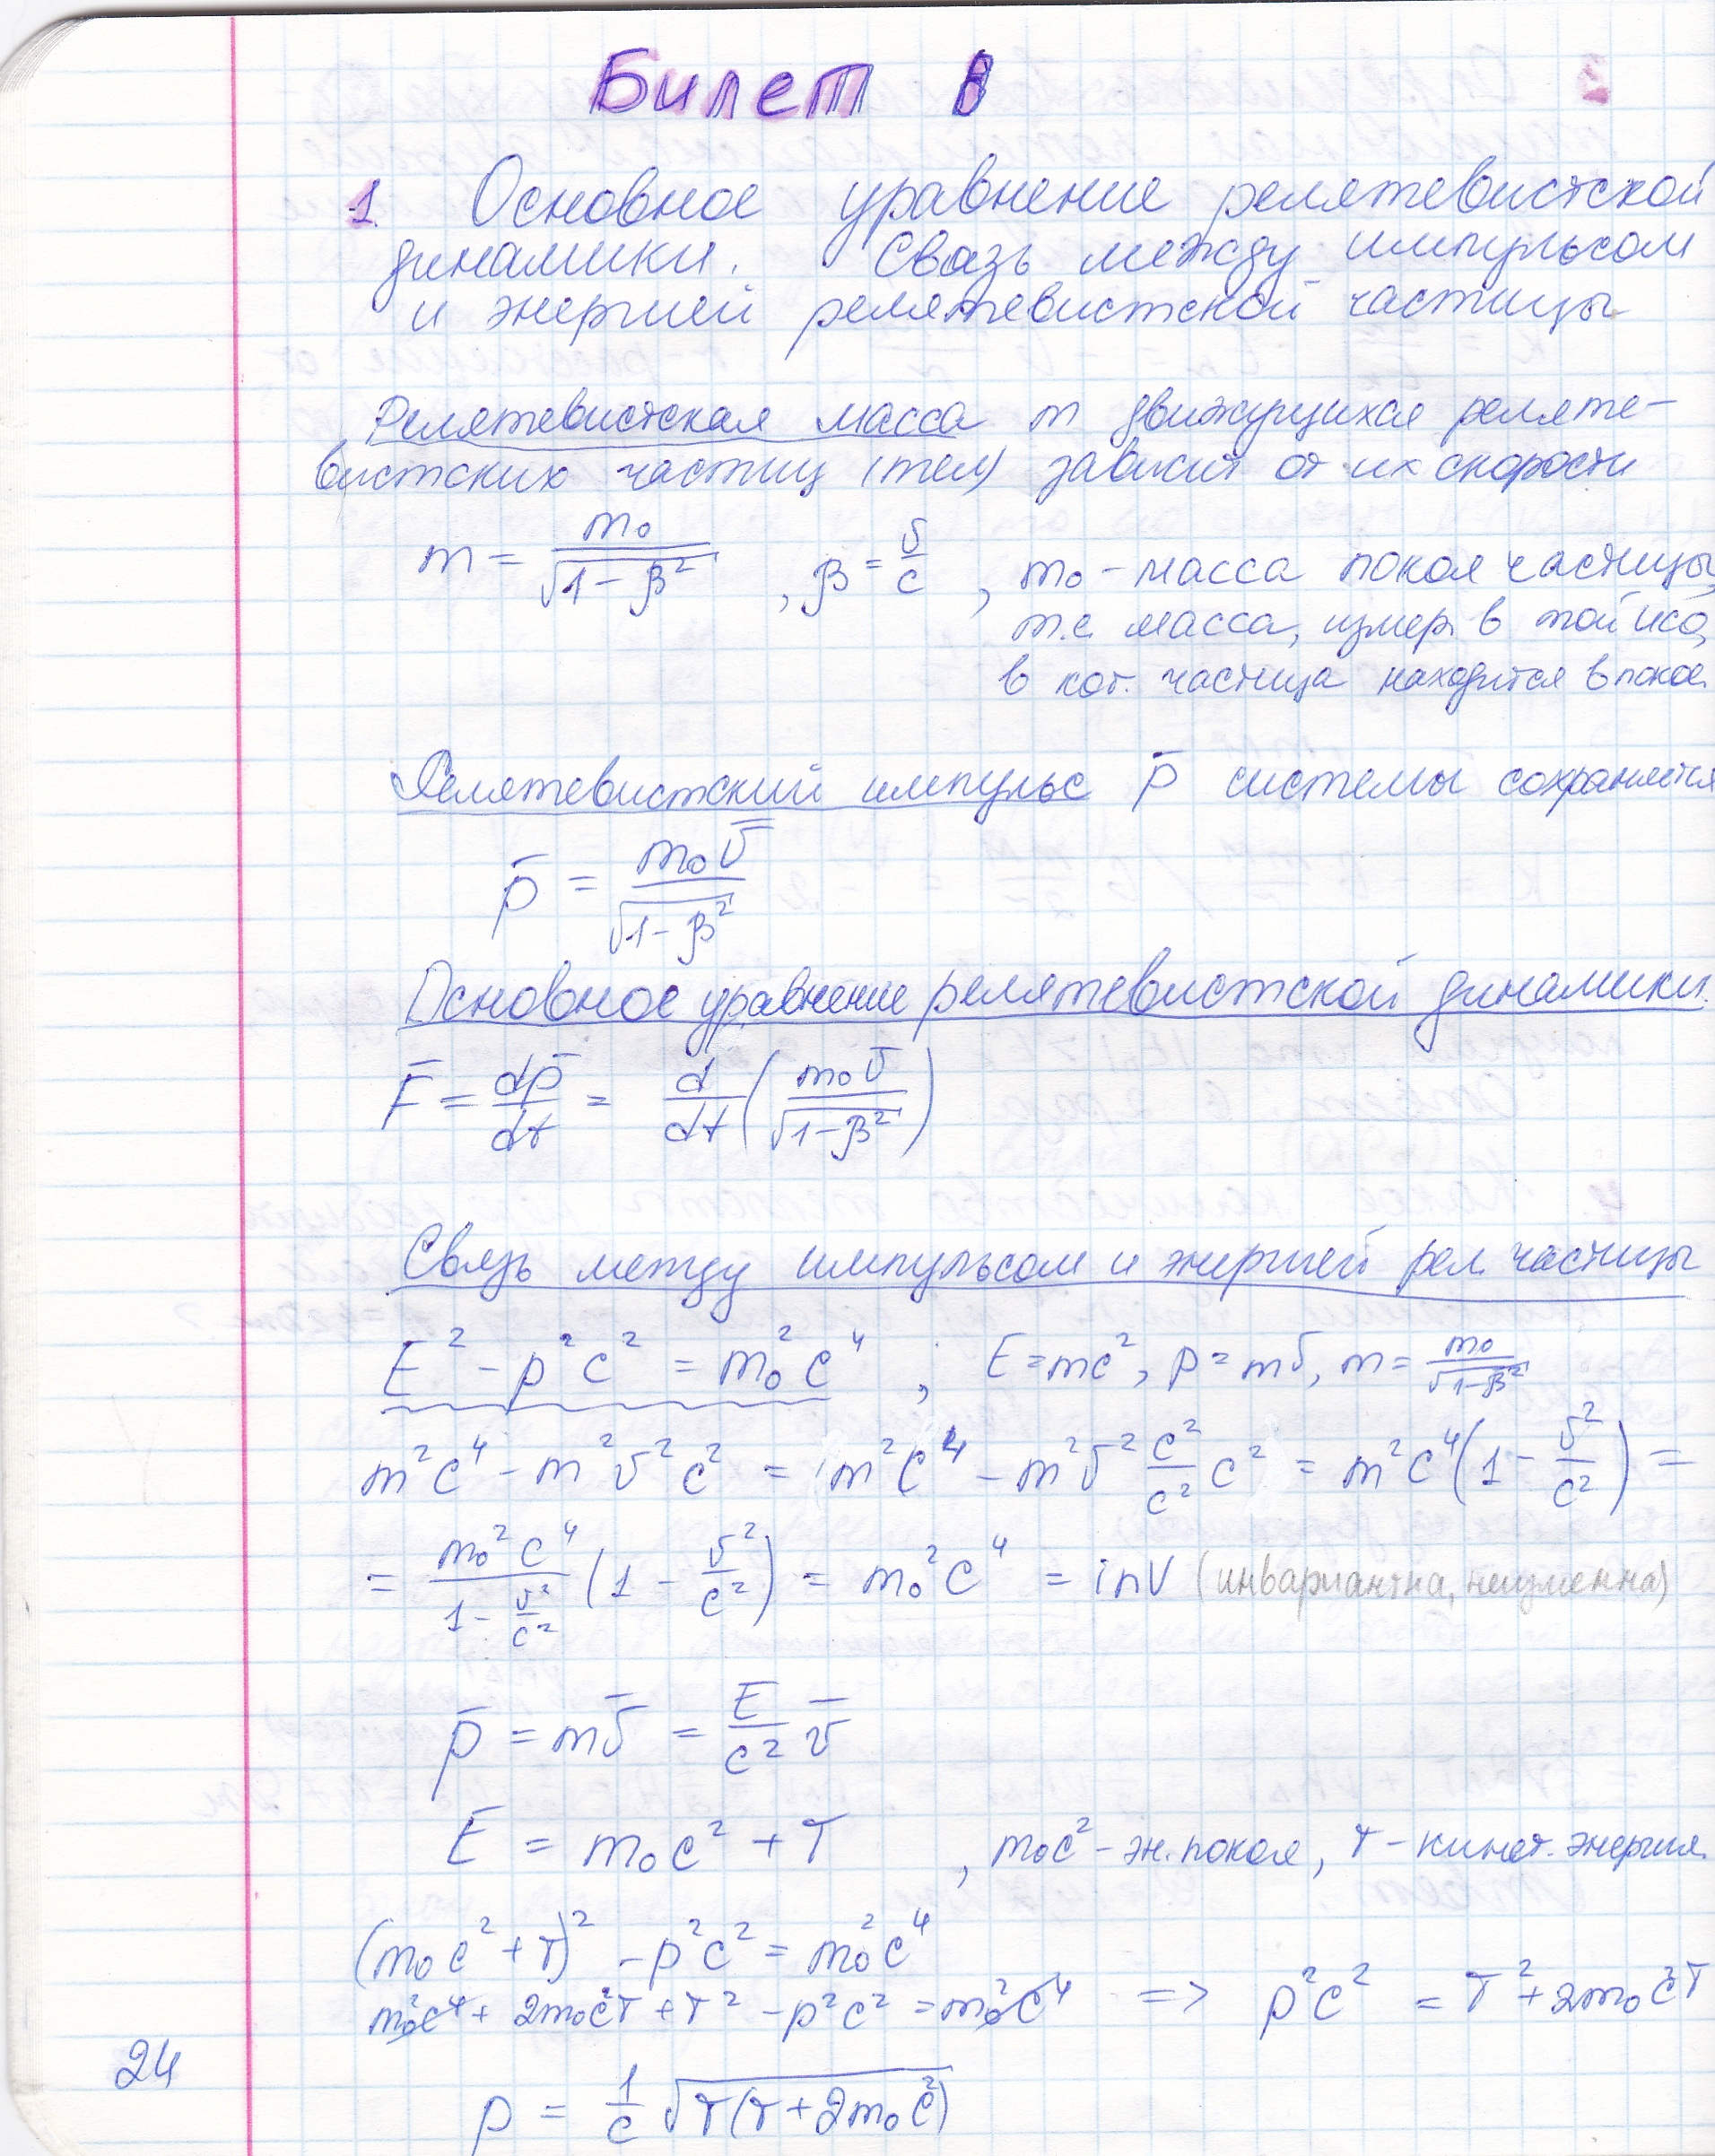 Билет 8
1. Основное уравнение релятевистской
динамики. Связь между импульсом
и энергией релятевистской частицы
Релятевистская масса m движущихся реляте-
вистских частиц (тел) зависит от их скорости
m = m₀/√(1-β²) , β = v/c , m₀ - масса покоя частицы,
т.е. масса, измер. в той исо,
в кот. частица находится в покое.
Релятевистский импульс p̄ системы сохраняется
p̄ = m₀v̄/√(1-β²)
Основное уравнение релятевистской динамики.
F̄ = dp̄/dt = d/dt (m₀v̄/√(1-β²))
Связь между импульсом и энергией рел. частицы
E² - p²c² = m₀²c⁴ ; E = mc², p = mv, m = m₀/√(1-β²)
m²c⁴ - m²v²c² = m²c⁴ - m²v² c²/c² c² = m²c⁴(1 - v²/c²) =
= m₀²c⁴/(1 - v²/c²) (1 - v²/c²) = m₀²c⁴ = inv (инвариантна, неизменна)
p̄ = mv̄ = E/c² v̄
E = m₀c² + T , m₀c² - эн. покоя, T - кинет. энергия.
(m₀c² + T)² - p²c² = m₀²c⁴
m₀²c⁴ + 2m₀c²T + T² - p²c² = m₀²c⁴ => p²c² = T² + 2m₀c²T
24
p = 1/c √(T(T + 2m₀c²))